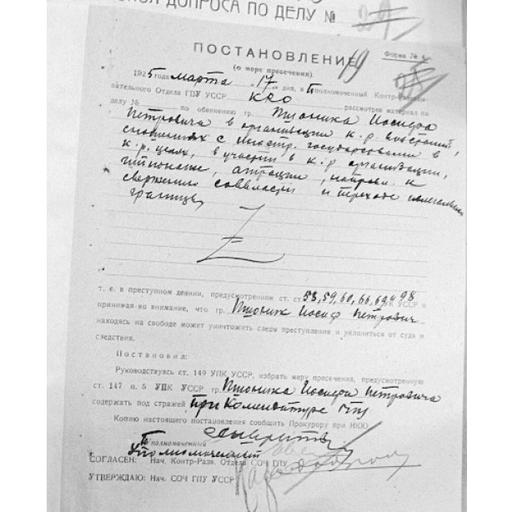 ДОПРОСА ПО ДЕЛУ №
ПОСТАНОВЛЕНИЕ
Форма №
(о мере пресечения)
1925 марта 17 дня, я полномоченный Контр-
вательного Отдела ГПУ УССР КРО рассмотрев материал по
делу № по обвинению гр. Пшоника Иосифа
Петровича в организации к.р. восстаний,
сношениях с иностр. государствами в
к.р. целях, в участии в к.р. организации,
шпионаже, агитации, направл. к
свержению соввласти и переходе нелегально
границы
Z
т. е. в преступном деянии, предусмотренном ст. ст. 58, 59, 60, 66, 69 и 98 УК УССР и
принимая во внимание, что гр. Пшоник Иосиф Петрович
находясь на свободе может уничтожить следы преступления и уклониться от суда и
следствия.
Постановил:
Руководствуясь ст. 149 УПК УССР, избрать меру пресечения, предусмотренную
ст. 147 п. 5 УПК УССР гр. Пшоника Иосифа Петровича
содержать под стражей при Комендатуре ГПУ
Копию настоящего постановления сообщить Прокурору при НКЮ
полномоченный
СОГЛАСЕН: Нач. Контр-Разв. Отдела СОЧ ГПУ
УТВЕРЖДАЮ: Нач. СОЧ ГПУ УССР